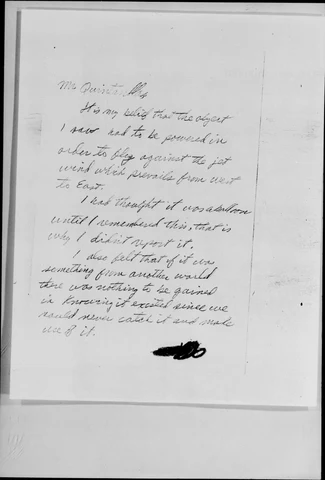 Mr Quintanilla
It is my belief that the object
I saw had to be powered in
order to fly against the jet
wind which prevails from west
to East.
I had thought it was a balloon
until I remembered this, that is
why I didn't report it.
I also felt that if it was
something from another world
there was nothing to be gained
in knowing it existed since we
could never catch it and make
use of it.